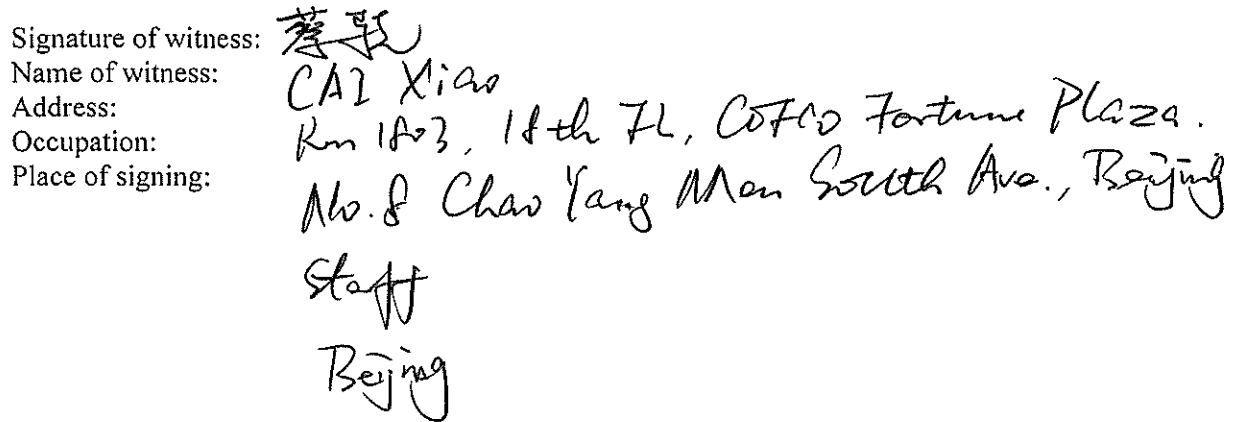 Signature of witness: 蔡
Name of witness: CAI Xiao
Address: Rm 1803, 18th FL, COFCO Fortune Plaza.
No.8 Chao Yang Men South Ave., Beijing
Occupation: Staff
Place of signing: Beijing